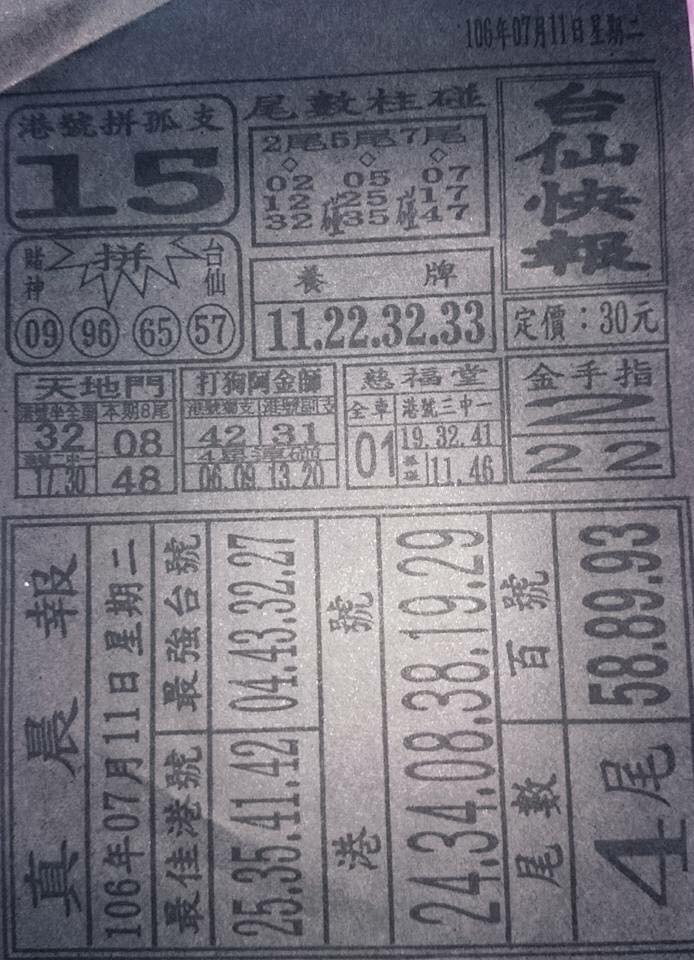 106年07月11日星期二
台仙快報
定價：30元
港號拼孤支
15
尾數柱碰
2尾5尾7尾
02 05 07
12 25 17
32 碰 35 碰 47
賭神 拼 台仙
09 96 65 57
養牌
11.22.32.33
天地門
本期8尾
32 08
17.30 48
打狗阿金師
港號獨支 港號副支
42 31
06.09 13.20
慈福堂
全車 港號三中一
01 19.32.41
11.46
金手指
2
22
真晨報
106年07月11日星期二
最佳港號 最強台號
25.35.41.42 04.43.32.27
港號
24.34.08.38.19.29
尾數 百號
4尾 58.89.93